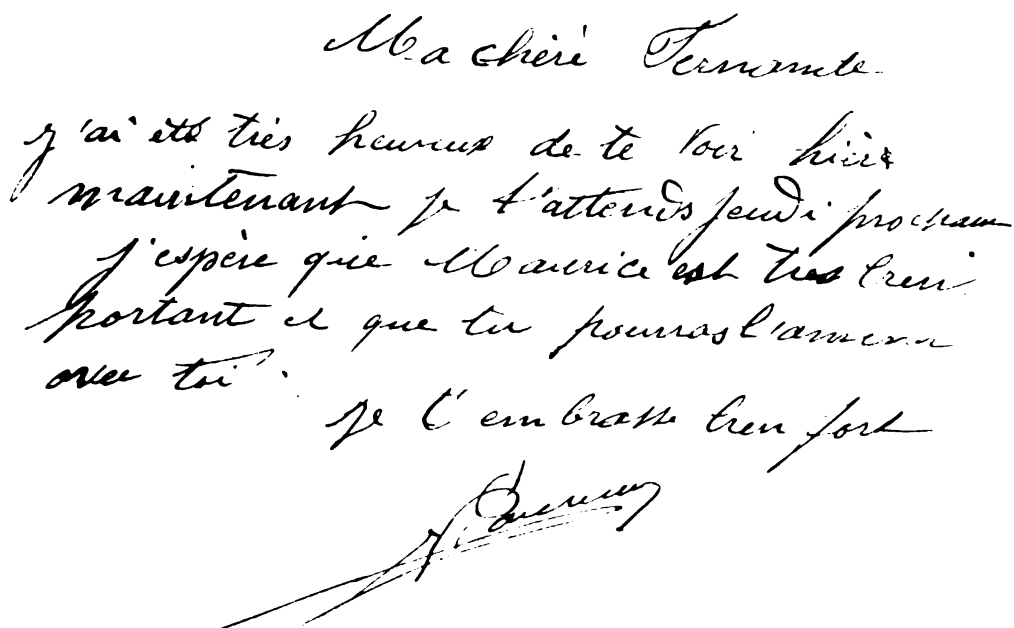 Ma chère Fernande
j'ai été très heureux de te voir hier
maintenant je t'attends jeudi prochain
j'espère que Maurice est très bien
portant et que tu pourras l'amener
avec toi.
je t'embrasse bien fort